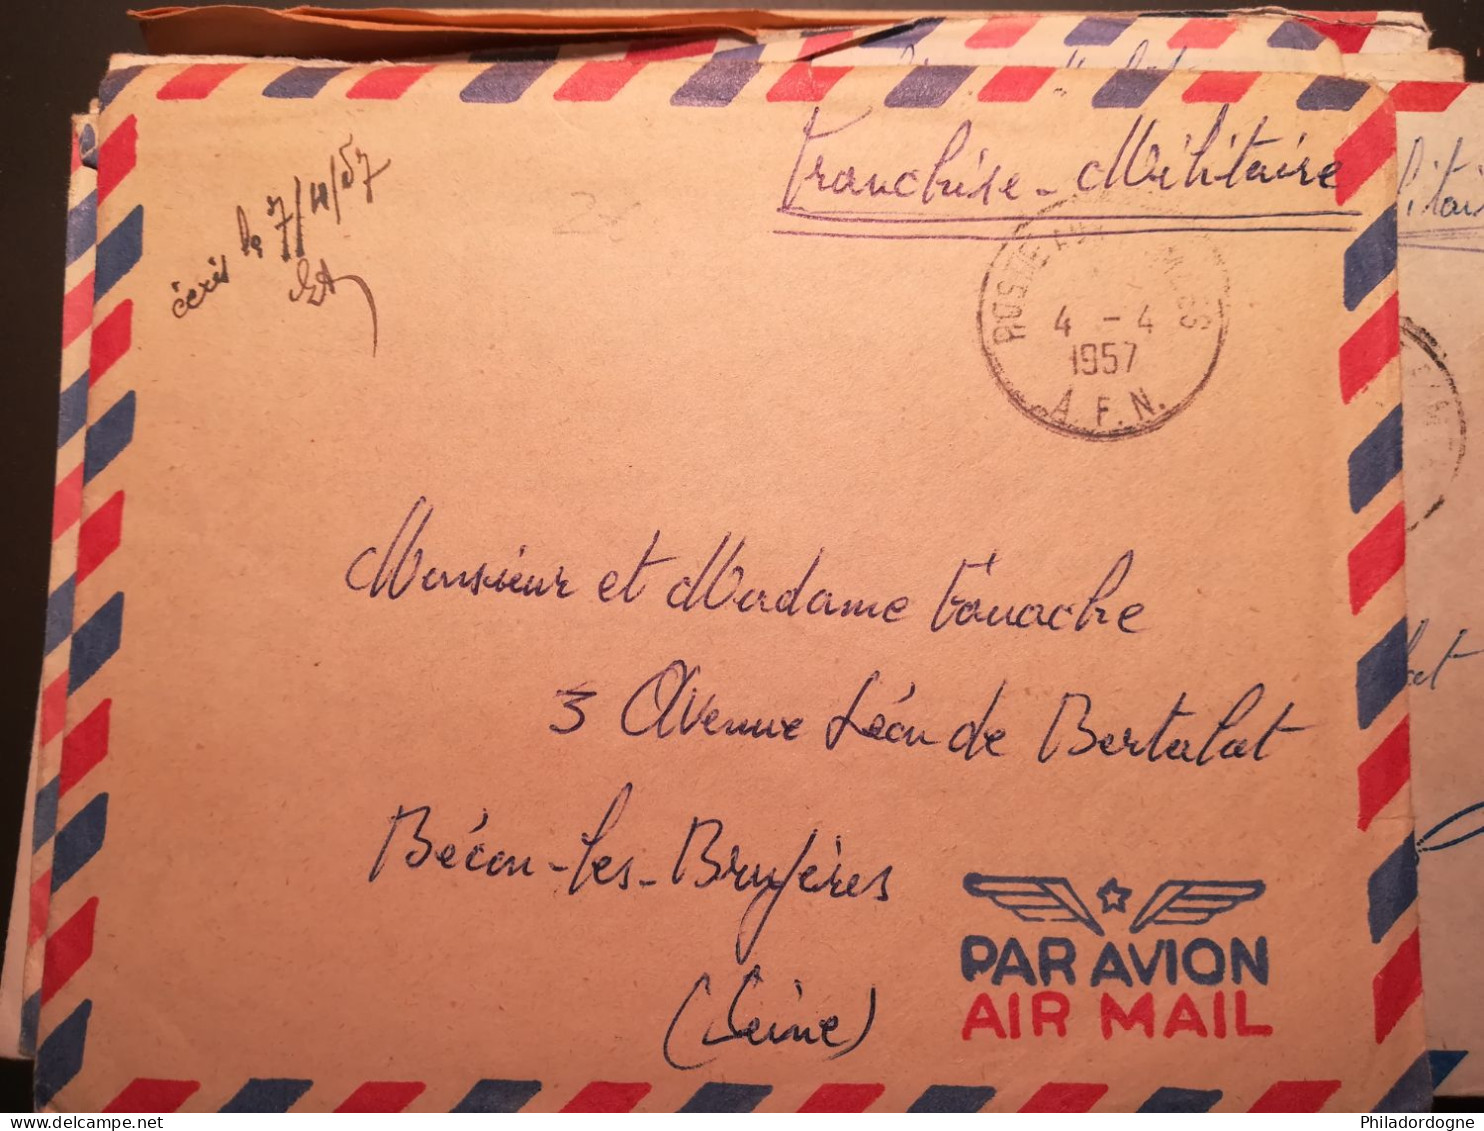 Franchise-Militaire
écris le 7/4/57
POSTE AUX ARMEES
4 - 4
1957
A.F.N.
Monsieur et Madame Fouache
3 Avenue Léon de Bertalat
Bécon-les-Bruyères
(Seine)
PAR AVION
AIR MAIL
Philadordogne